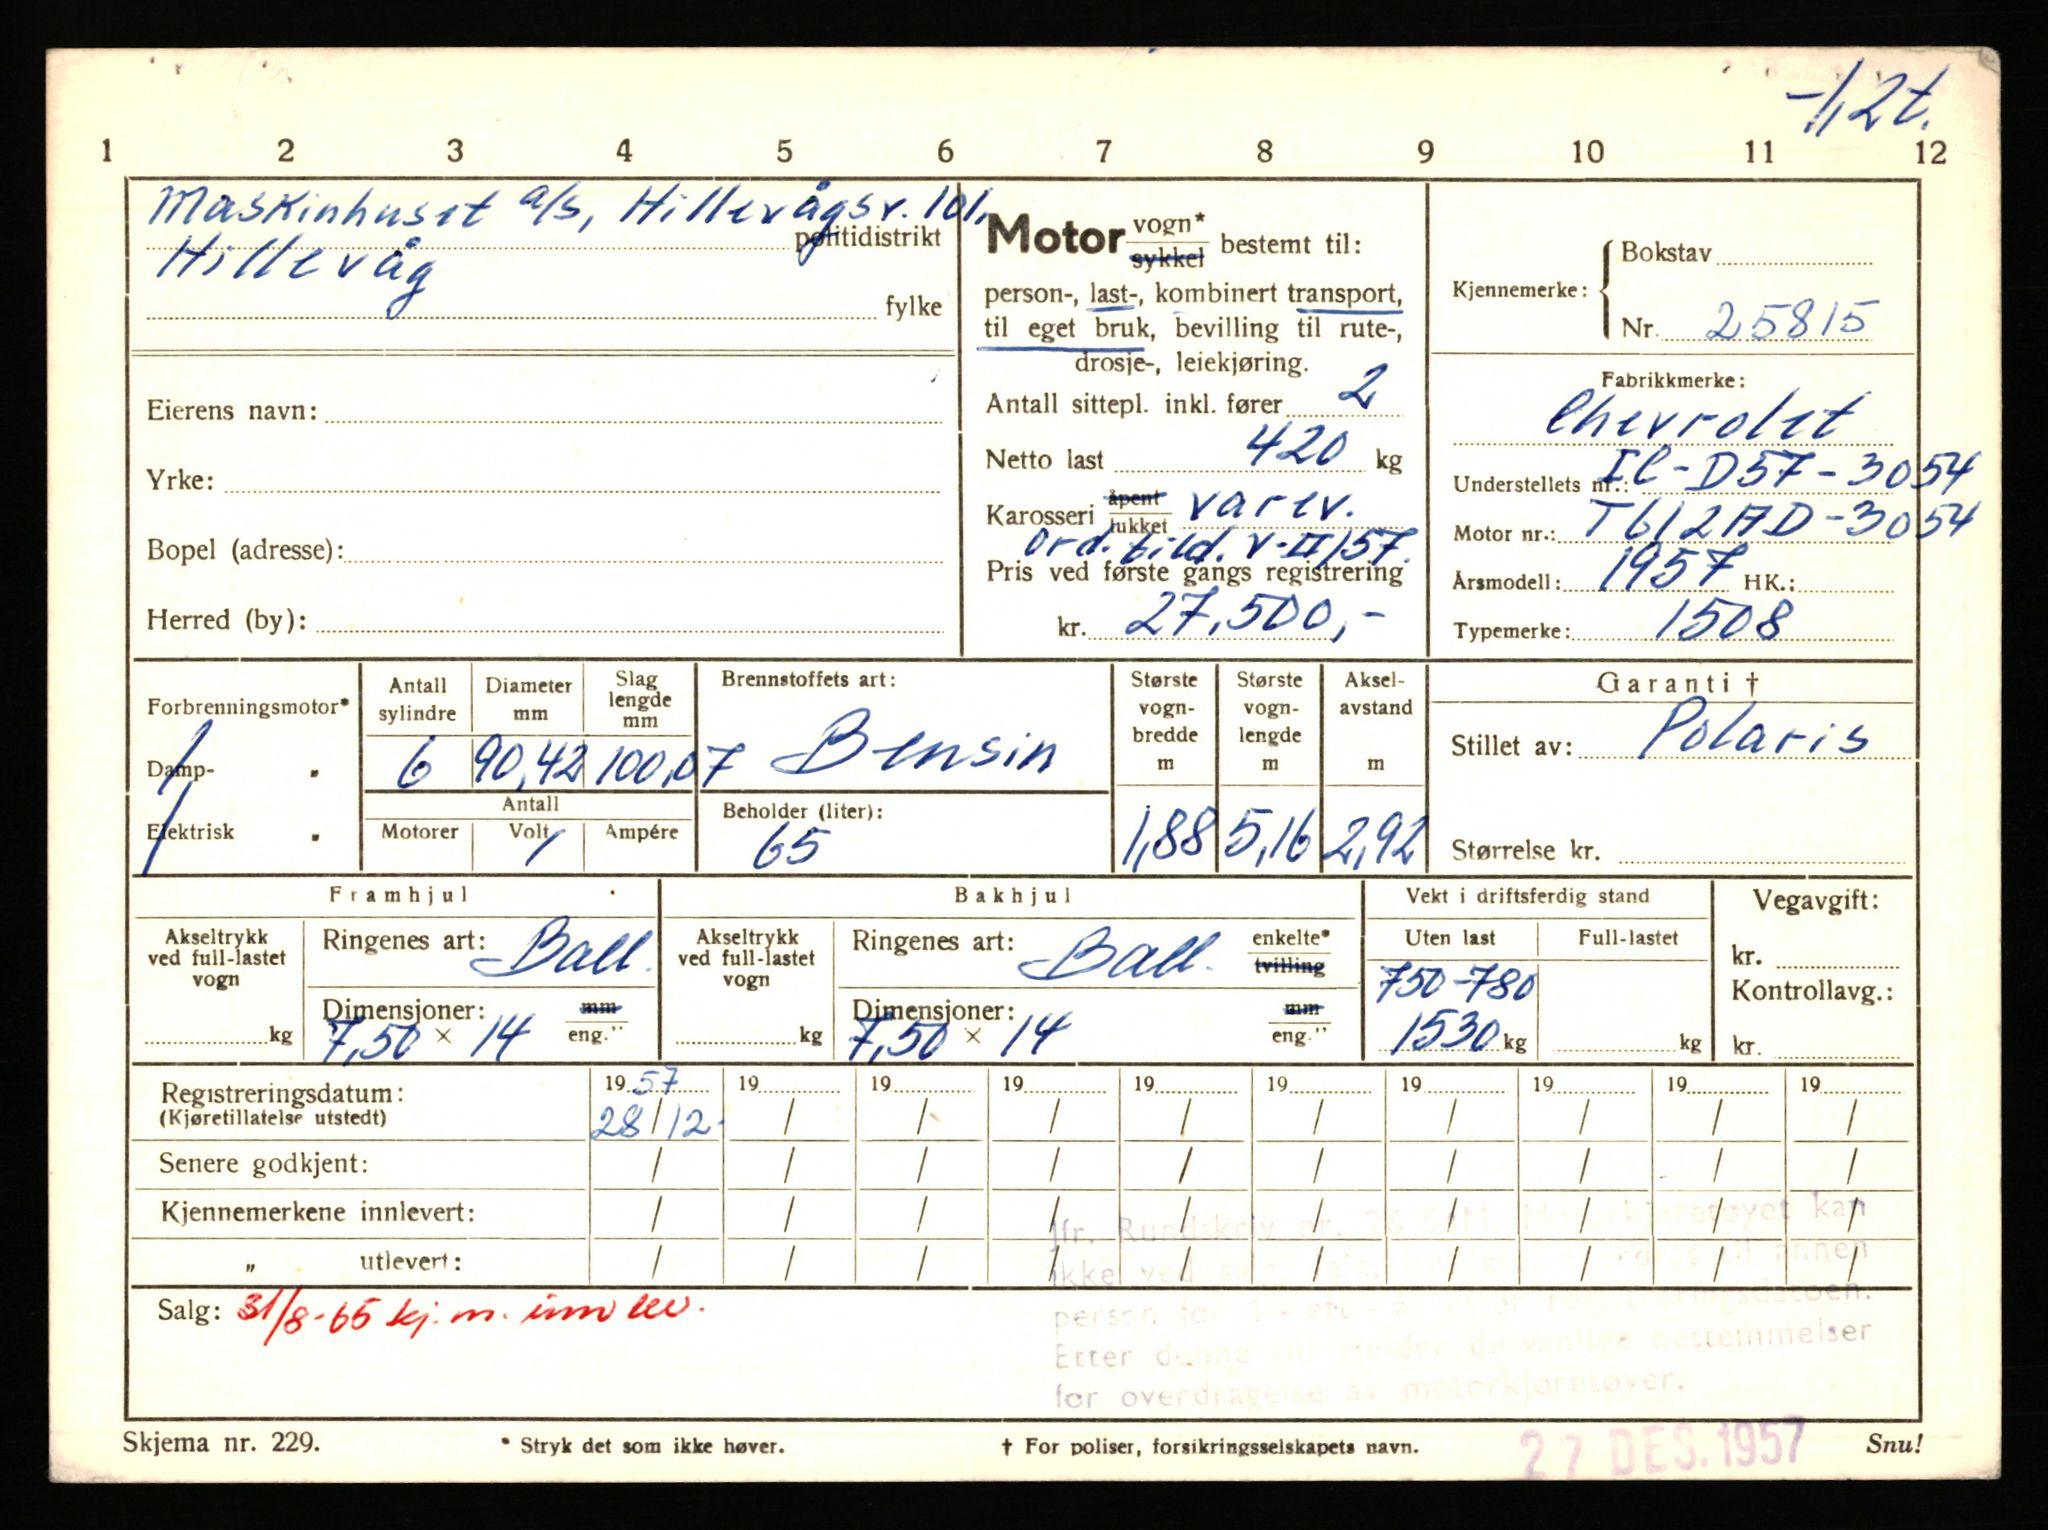 -1,2t.
1 2 3 4 5 6 7 8 9 10 11 12
Maskinhuset a/s, Hillevågsv. 101,
politidistrikt
Hillevåg
fylke
Eierens navn:
Yrke:
Bopel (adresse):
Herred (by):
Motor vogn* sykkel bestemt til:
person-, last-, kombinert transport,
til eget bruk, bevilling til rute-,
drosje-, leiekjøring.
Antall sittepl. inkl. fører 2
Netto last 420 kg
Karosseri åpent lukket varev.
ord. tild. V-II/57.
Pris ved første gangs registrering
kr. 27.500,-
Kjennemerke: Bokstav
Nr. 25815
Fabrikkmerke:
Chevrolet
Understellets nr.: IC-D57-3054
Motor nr.: T612AD-3054
Årsmodell: 1957 HK.:
Typemerke: 1508
Forbrenningsmotor*
Damp- "
Elektrisk "
Antall sylindre
6
Diameter mm
90,42
Slag lengde mm
100,07
Antall
Motorer Volt Ampére
Brennstoffets art:
Bensin
Beholder (liter):
65
Største vogn- bredde m
1,88
Største vogn- lengde m
5,16
Aksel- avstand m
2,92
Garanti †
Stillet av: Polaris
Størrelse kr.
Framhjul
Akseltrykk ved full-lastet vogn
kg
Ringenes art: Ball.
Dimensjoner: mm
7,50 × 14 eng."
Bakhjul
Akseltrykk ved full-lastet vogn
kg
Ringenes art: Ball. enkelte* tvilling
Dimensjoner: mm
7,50 × 14 eng."
Vekt i driftsferdig stand
Uten last Full-lastet
750-780
1530 kg kg
Vegavgift:
kr.
Kontrollavg.:
kr.
Registreringsdatum: 19 57 19 19 19 19 19 19 19 19 19
(Kjøretillatelse utstedt) 28/12. / / / / / / / / /
Senere godkjent: / / / / / / / / / /
Kjennemerkene innlevert: / / / / / / / / / /
" utlevert: / / / / / / / / / /
Salg: 31/8-65 kj. m. innlev.
Jfr. Rundskriv nr. kan
ikke ved til annen
person
Etter denne tid gjelder de vanlige bestemmelser
for overdragelse av motorkjøretøyer.
27 DES. 1957
Skjema nr. 229.
* Stryk det som ikke høver.
† For poliser, forsikringsselskapets navn.
Snu!